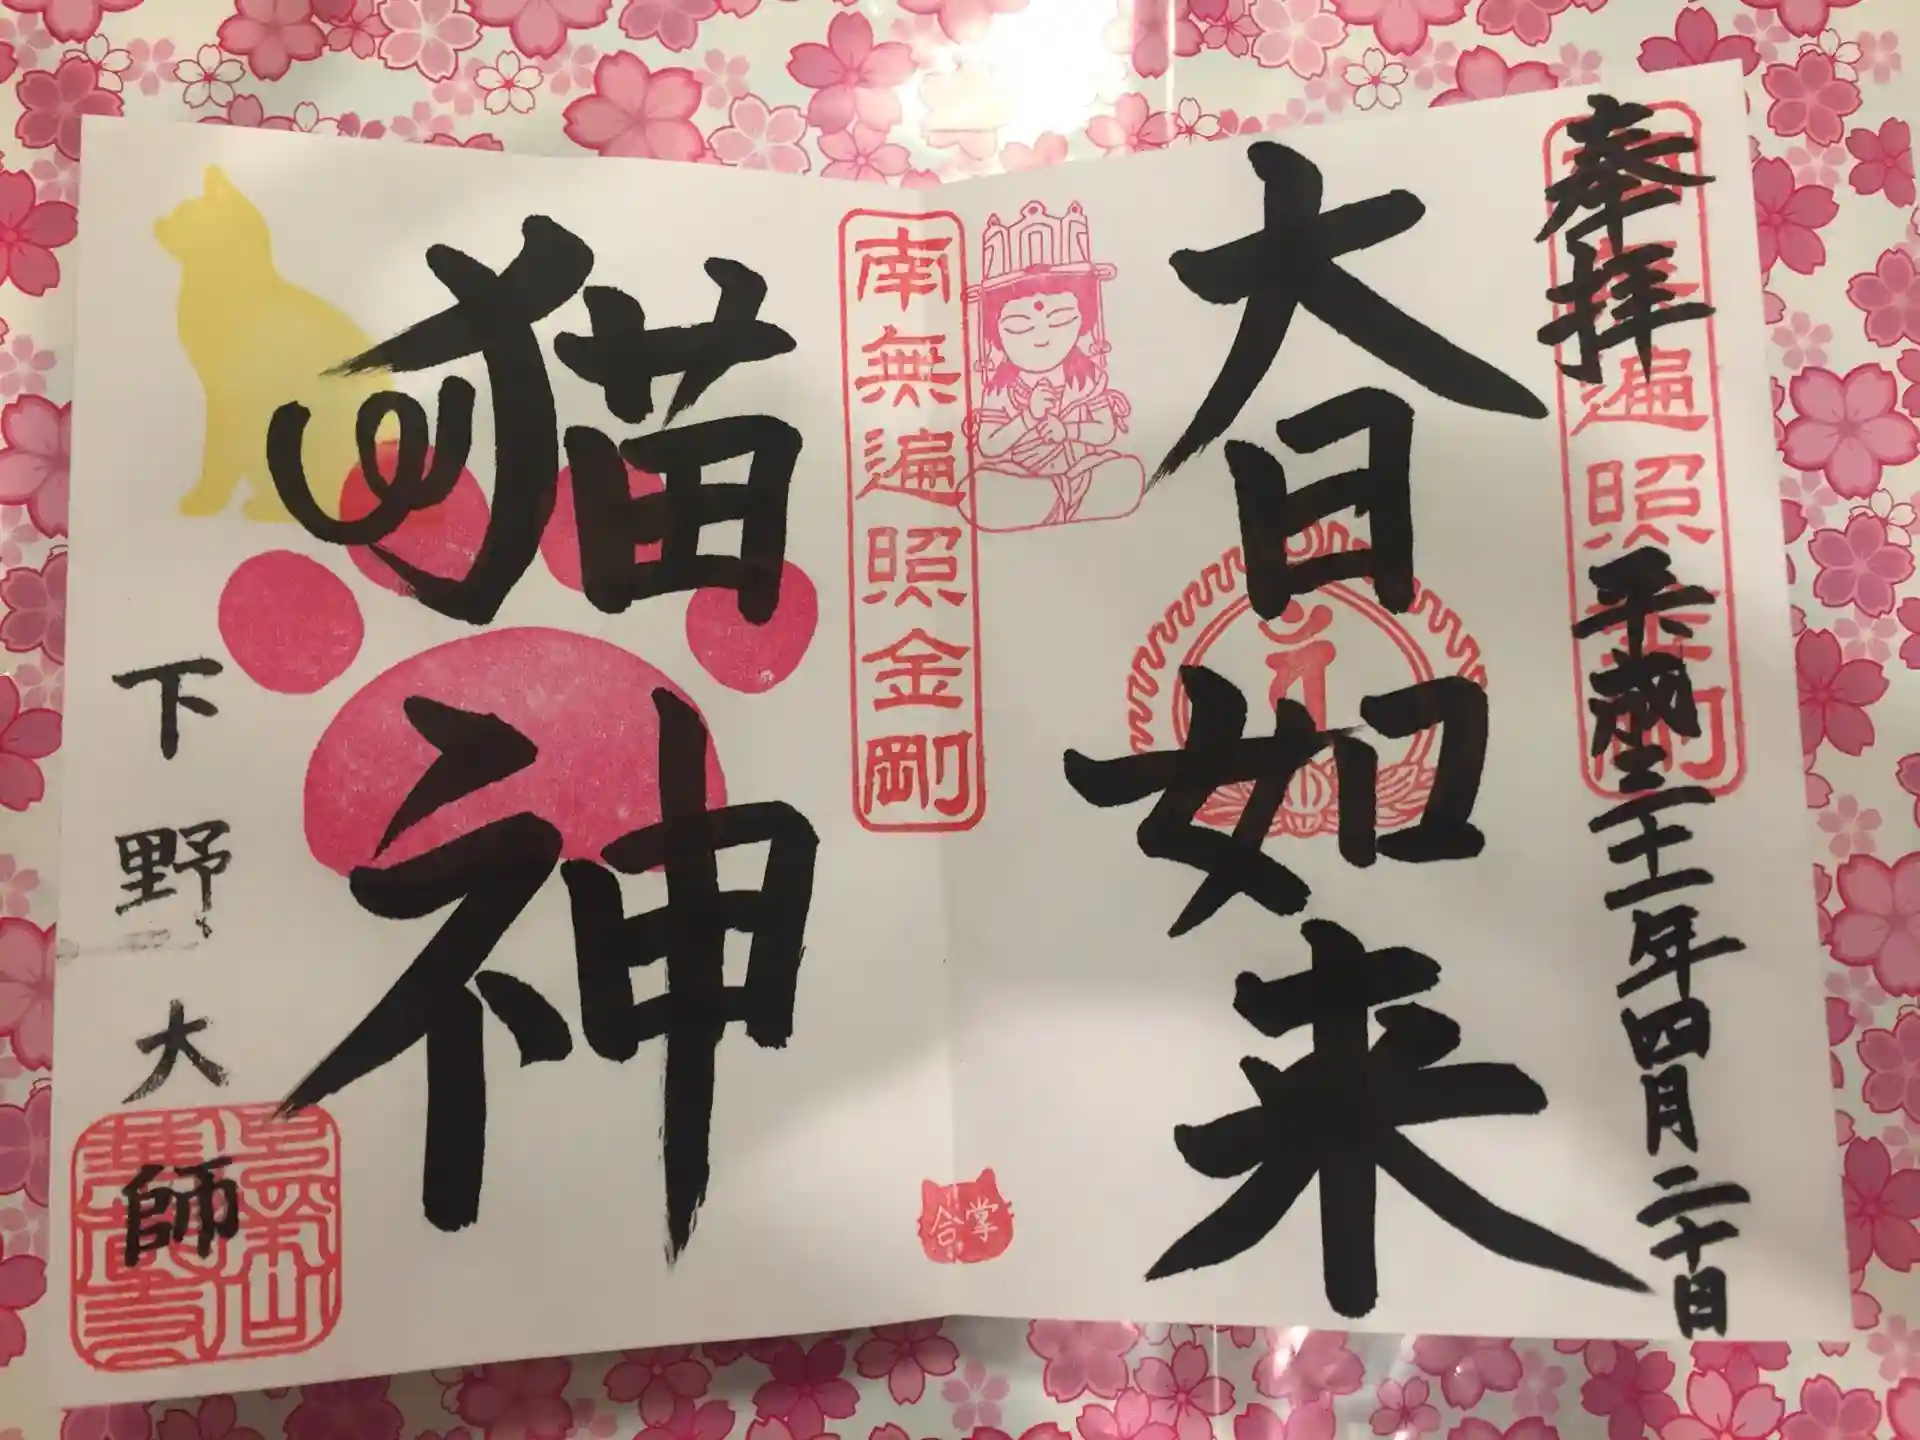 奉拝
平成三十一年四月二十日
大日如来
南無遍照金剛
猫神
下野大師
合掌